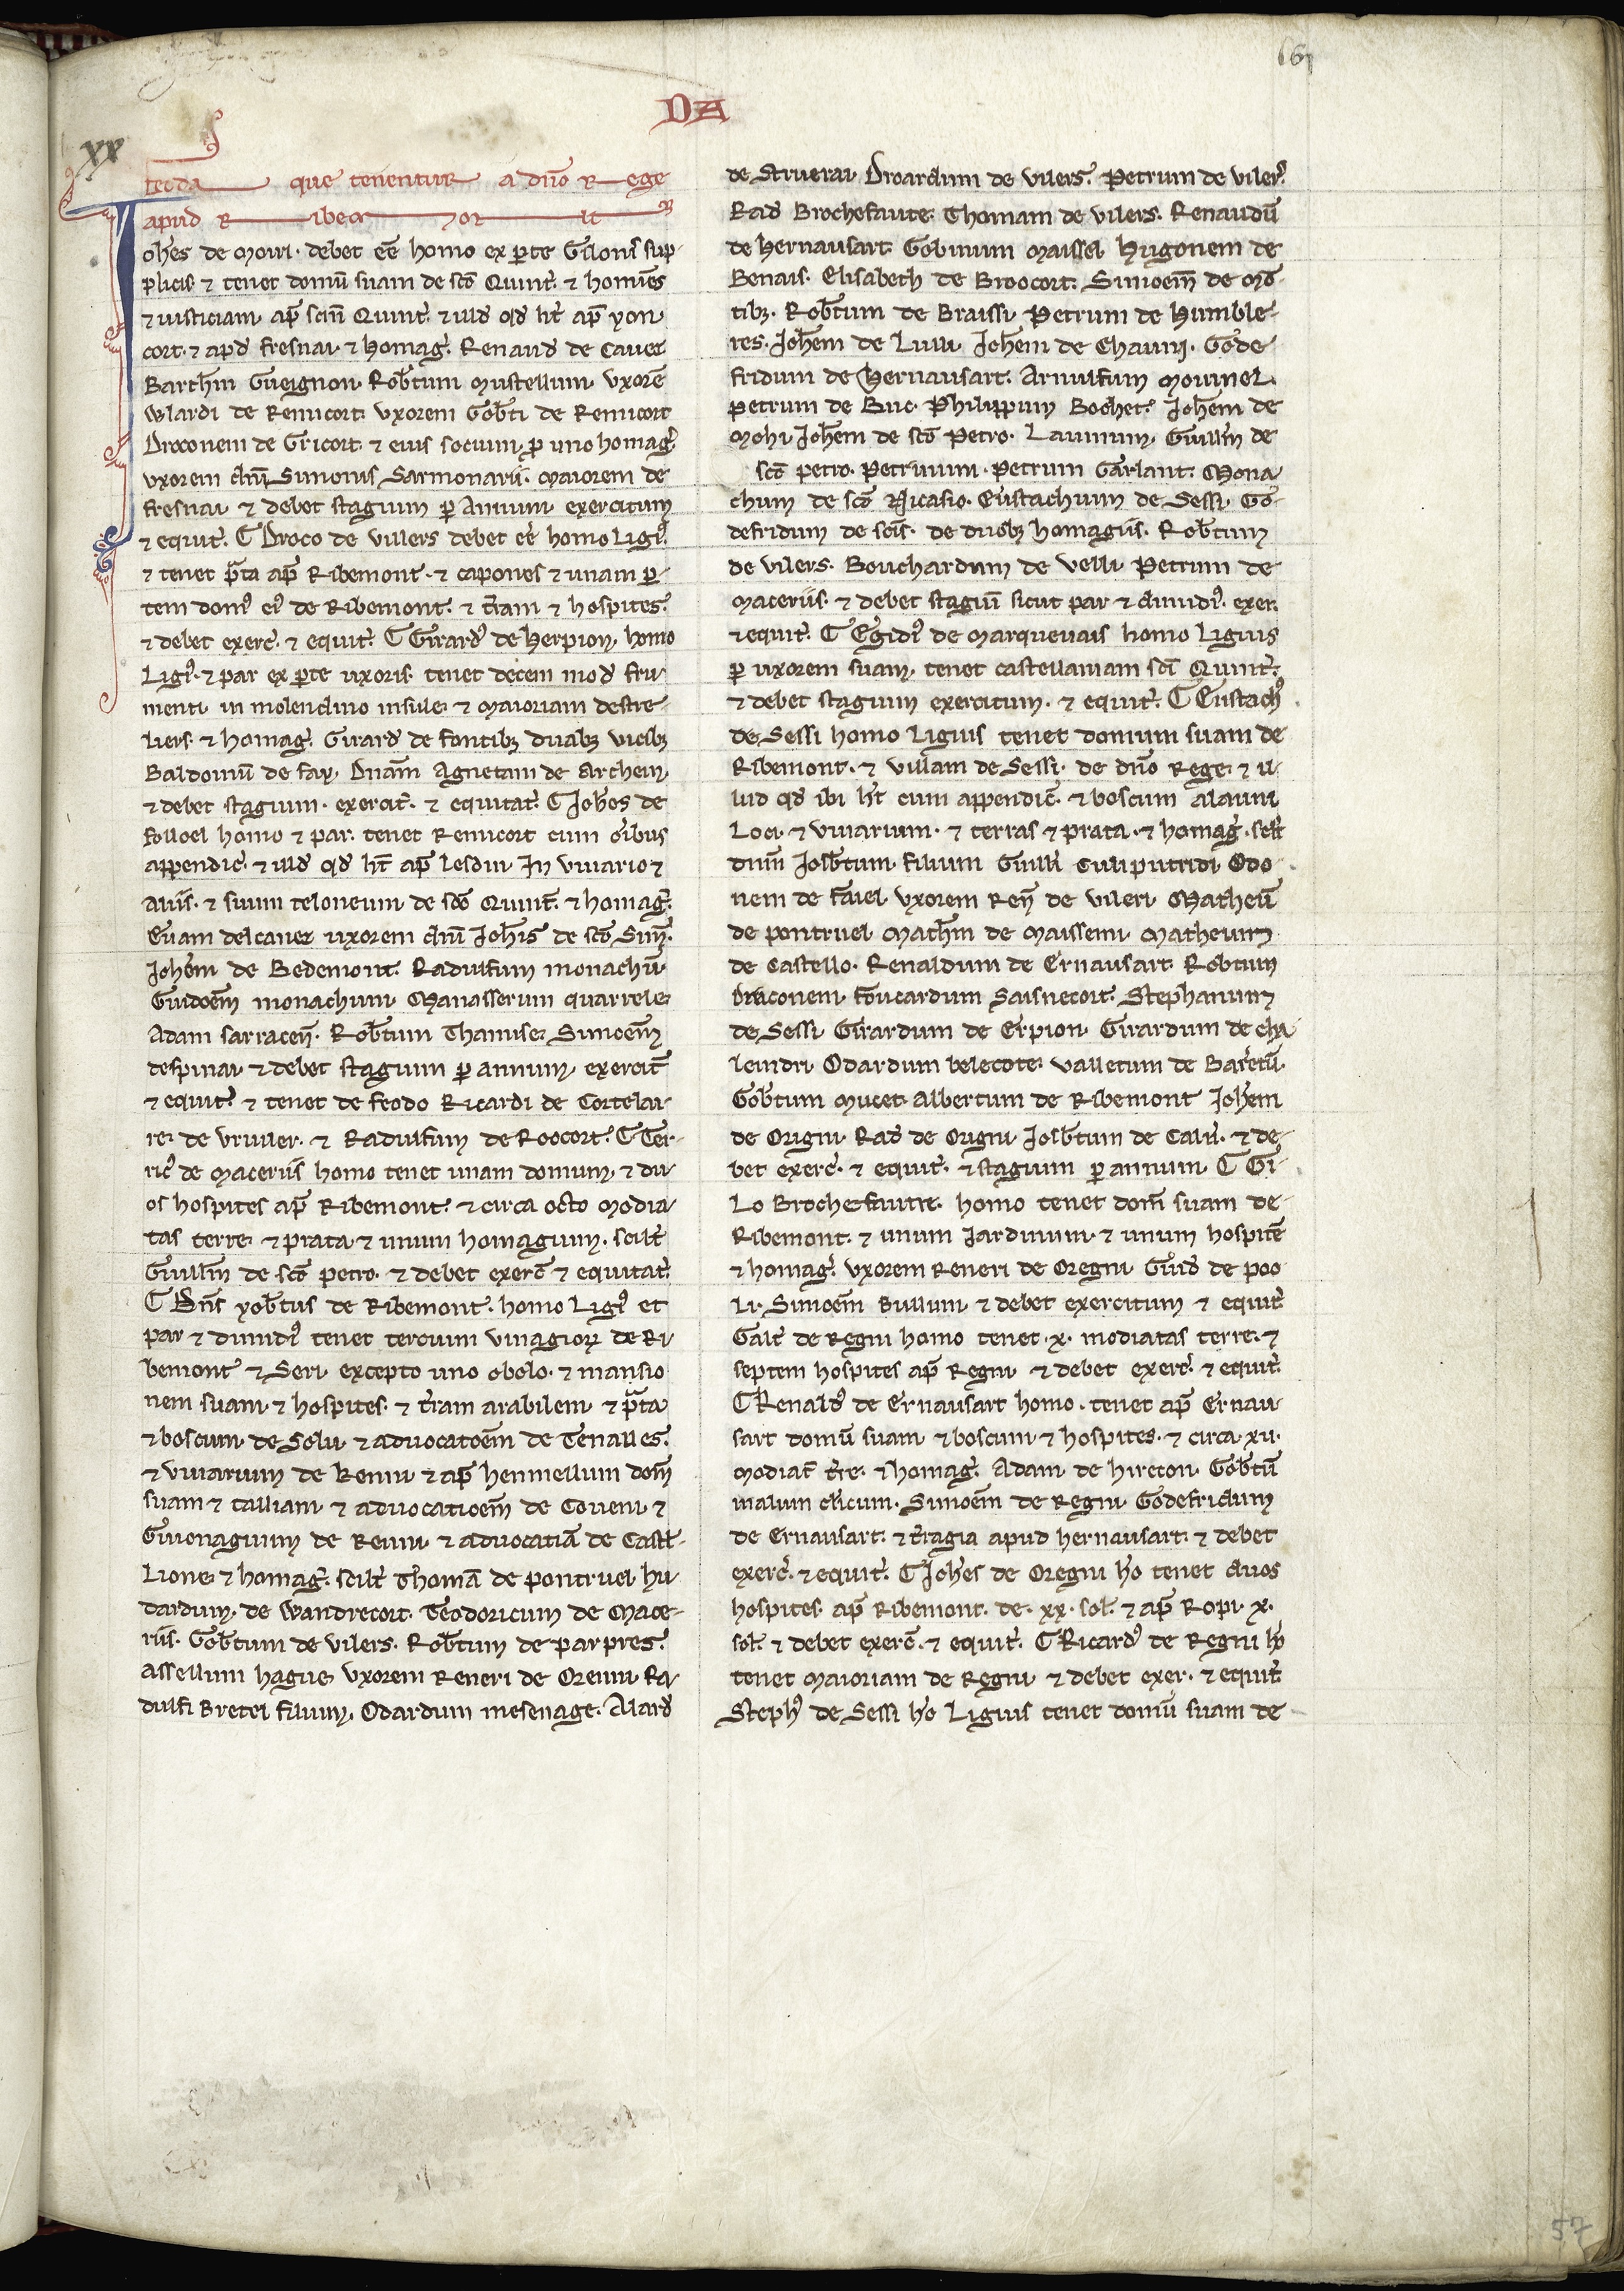 DA
XX
feoda que tenentur a dño Rege
apud Ribemont
Joħes de Moiri. debet eē homo ex ꝑte Gilonis sup
plicis. ⁊ tenet domū suam de sc̄o Quint̄. ⁊ homines
⁊ iusticiam ap̄ sc̄m Quint̄. ⁊ illd̄ qd̄ ħt ap̄ yon
cort. ⁊ apd̄ fresnai. ⁊ homag̃. Renaud̄ de Cauer
Barth̄m Gueignon. Rob̄tum Mustellum. Vxorē
Wiardi de Remicort. Vxorem Gob̄ti de Remicort
Droconem de Gricort. ⁊ eius socium ꝑ uno homag̃.
Vxorem dn̄i Simonis Sarmonarii. Maiorem de
fresnai. ⁊ debet stagium ꝑ Annum. exercitum
⁊ equit̄. C Droco de Villers debet eē homo Ligiꝰ.
⁊ tenet p̃ta ap̄ Ribemont. ⁊ capones ⁊ unam ꝑ
tem domꝰ eiꝰ de Ribemont. ⁊ t̃ram ⁊ hospites.
⁊ debet exerc̄. ⁊ equit̄. C Girardꝰ de herpion, homo
Ligiꝰ. ⁊ par ex ꝑte uxoris. tenet decem mod̄ fru
menti in molendino insule. ⁊ Maioriam destre
liers. ⁊ homag̃. Girard̄ de fontibꝫ duabꝫ uicibꝫ
Baldoinū de fay. Dnām Agnetam de Archem.
⁊ debet stagium. exercit̄. ⁊ equitat̄. C Joħes de
folloel homo ⁊ par. tenet Remicort cum oībus
appendic̄. ⁊ illd̄ qd̄ ħt ap̄ Lesdin. In viuario ⁊
aliis. ⁊ suum teloneum de sc̄o Quint̄. ⁊ homag̃.
Euam delcauer uxorem dn̄i Joħis de sc̄o Sim̄.
Joħem de Bedemont. Radulfum monachū.
Guidoēm monachum. Manasserum quarrele.
Adam sarracen̄. Rob̄tum Thamise. Simoēm
despinai. ⁊ debet stagium ꝑ annum, exercit̄
⁊ equit̄. ⁊ tenet de feodo Ricardi de Cortelai
re. de Vruller. ⁊ Radulfum de Roocort. C Ter
ricꝰ de Maceriis homo tenet unam domum. ⁊ du
os hospites ap̄ Ribemont. ⁊ circa octo modia
tas terre. ⁊ prata. ⁊ unum homagium. scilt̄
Guillm̄ de sc̄o petro. ⁊ debet exerc̄ ⁊ equitat̄.
C Dn̄s yob̄tus de Ribemont. homo Ligiꝰ et
par ⁊ dimidiꝰ tenet tercium vinagioꝝ de Ri
bemont ⁊ Seri excepto uno obolo. ⁊ mansio
nem suam. ⁊ hospites. ⁊ t̃ram arabilem ⁊ p̃ta
⁊ boscum de Solu. ⁊ aduocatoēm de Tenalles.
⁊ viuarium de Remi. ⁊ ap̄ henmellum dom̄
suam ⁊ talliam. ⁊ aduocatioēm de Couem. ⁊
Guionagium de Remi. ⁊ aduocatiā de Castł
Lione. ⁊ homag̃. scilt̄ Thomā de pontruel hu
dardum. de Wandrecort. Teodoricum de Mace
riis. Gob̄tum de vilers. Rob̄tum de parpres.
Assellum hague. Vxorem Reneri de Oreim. Ra
dulfi Bretel filium. Odardum mesenage. Alard̄
de Struerai Droardum de vilers. Petrum de vilers.
Rad̄ Brochefaute. Thomam de vilers. Renaudū
de hernausart. Gobinum Maissel. Hugonem de
Benais. Elisabeth de Broocort. Simoēm de Mō
tibꝫ. Rob̄tum de Braissi. Petrum de Humble
res. Joħem de Lulli. Joħem de Chauni. Gode
fridum de hernausart. Arnulfum Mouinel.
petrum de Buc. Philippum Bochet. Joħem de
Mohi. Joħem de sc̄o Petro. Launum. Guillm̄ de
sc̄o petro. Petruum. Petrum Garlant. Mona
chum de sc̄o Nicasio. Eustachium de Sessi. Go
defridum de sc̄is. de duobꝫ homagiis. Rob̄tum
de vilers. Bouchardum de velli. Petrum de
Maceriis. ⁊ debet stagiū sicut par ⁊ dimidiꝰ. exer.
⁊ equit̄. C Egidiꝰ de Marquevais homo Ligius
ꝑ uxorem suam, tenet castellaniam sc̄i Quint̄.
⁊ debet stagium exercitum. ⁊ equit̄. C Eustachꝰ
de Sessi homo Ligius tenet domum suam de
Ribemont. ⁊ villam de Sessi. de dn̄o Rege. ⁊ il
lud qd̄ ibi ħt cum appendic̄. ⁊ boscum alauni
Loci. ⁊ viuarium. ⁊ terras ⁊ prata. ⁊ homag̃. scilt̄
dn̄m Josb̄tum filium Guilli Culiputridi. Odo
nem de faiel. Vxorem Ren̄ de vileri. Matheū
de pontruel. Math̄m de Maissemi. Matheum
de Castello. Renaldum de Ernausart. Rob̄tum
Draconem. foucardum Saisnecort. Stephanum
de Sessi. Girardum de Erpion. Girardum de cha
leindri. Odardum belecote. Valletum de Baretū.
Gob̄tum Mucet. Albertum de Ribemont. Joħem
de Origni. Rad̄ de Origni. Josb̄tum de Calū. ⁊ de
bet exerc̄. ⁊ equit̄. ⁊ stagium ꝑ annum. C Gi
Lo Brochefautre. homo tenet dom̄ suam de
Ribemont. ⁊ unum Jardinum. ⁊ unum hospitē
⁊ homag̃. Vxorem Reneri de Oregni. Guid̄ de poo
li. Simoēm Bullum. ⁊ debet exercitum ⁊ equit̄
Galt̄ de Regni homo tenet .x. modiatas terre. ⁊
septem hospites ap̄ Regni ⁊ debet exerc̄. ⁊ equit̄.
C Renaldꝰ de Ernausart homo. tenet ap̄ Ernau
sart domū suam ⁊ boscum ⁊ hospites. ⁊ circa xii.
modiat̄ t̃re. ⁊ homag̃. Adam de hirecon. Gob̄tū
malum cl̄icum. Simoēm de Regni. Godefridum
de Ernausart. ⁊ t̃ragia apud hernausart. ⁊ debet
exerc̄. ⁊ equit̄. C Joħes de Oregni ho tenet duos
hospites ap̄ Ribemont. de .xx. sol̄. ⁊ ap̄ Ropi. x.
sol̄. ⁊ debet exerc̄. ⁊ equit̄. C Ricardꝰ de Regni ho
tenet Maioriam de Regni ⁊ debet exer. ⁊ equit̄
Stephꝰ de Sessi ho Ligius tenet domū suam de
57